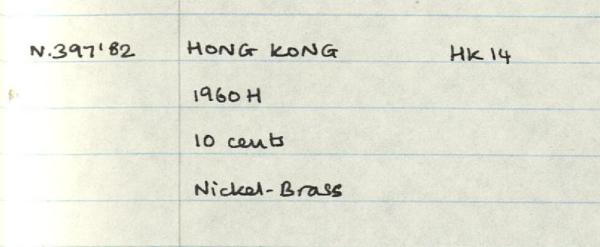 N.397'82 HONG KONG HK 14
1960 H
10 cents
Nickel-Brass